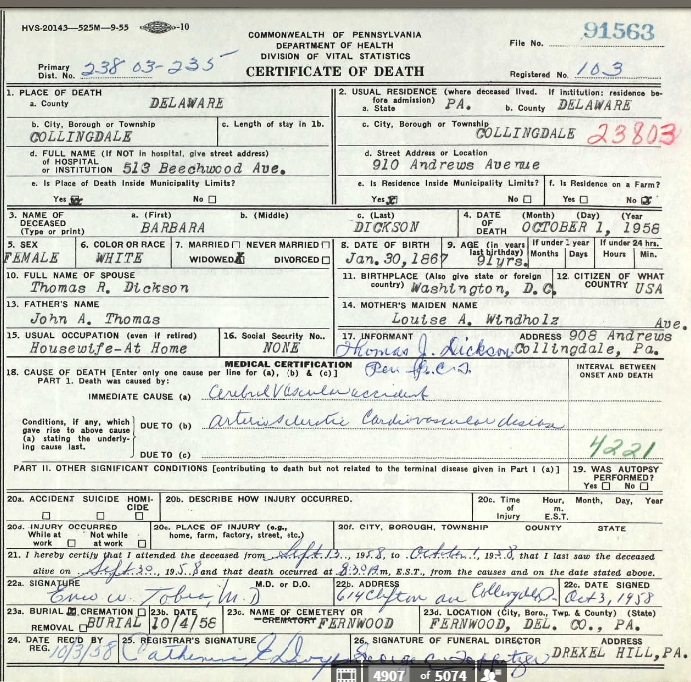 HVS-20143—525M—9-55 -10
COMMONWEALTH OF PENNSYLVANIA
DEPARTMENT OF HEALTH
DIVISION OF VITAL STATISTICS
CERTIFICATE OF DEATH
File No. 91563
Primary Dist. No. 238 03-235
Registered No. 103
1. PLACE OF DEATH
a. County DELAWARE
2. USUAL RESIDENCE (where deceased lived. If institution: residence before admission)
a. State PA. b. County DELAWARE
b. City, Borough or Township COLLINGDALE
c. Length of stay in 1b.
c. City, Borough or Township COLLINGDALE 23803
d. FULL NAME (If NOT in hospital, give street address) of HOSPITAL or INSTITUTION 513 Beechwood Ave.
d. Street Address or Location 910 Andrews Avenue
e. Is Place of Death Inside Municipality Limits?
Yes No
e. Is Residence Inside Municipality Limits?
Yes No
f. Is Residence on a Farm?
Yes No
3. NAME OF DECEASED (Type or print)
a. (First) BARBARA
b. (Middle)
c. (Last) DICKSON
4. DATE OF DEATH (Month) (Day) (Year) OCTOBER 1, 1958
5. SEX FEMALE
6. COLOR OR RACE WHITE
7. MARRIED NEVER MARRIED
WIDOWED DIVORCED
8. DATE OF BIRTH Jan.30,1867
9. AGE (in years last birthday) 91yrs.
If under 1 year Months Days
If under 24 hrs. Hours Min.
10. FULL NAME OF SPOUSE
Thomas R. Dickson
11. BIRTHPLACE (Also give state or foreign country) Washington, D.C.
12. CITIZEN OF WHAT COUNTRY USA
13. FATHER'S NAME
John A. Thomas
14. MOTHER'S MAIDEN NAME
Louise A. Windholz
15. USUAL OCCUPATION (even if retired)
Housewife-At Home
16. Social Security No..
NONE
17. INFORMANT Thomas J. Dickson
ADDRESS 908 Andrews Ave.
Collingdale, Pa.
MEDICAL CERTIFICATION
18. CAUSE OF DEATH [Enter only one cause per line for (a), (b) & (c)]
INTERVAL BETWEEN ONSET AND DEATH
PART 1. Death was caused by:
IMMEDIATE CAUSE (a) Cerebral Vascular accident
Conditions, if any, which gave rise to above cause (a) stating the underlying cause last.
DUE TO (b) arteriosclerotic Cardiovascular disease
DUE TO (c)
4221
PART II. OTHER SIGNIFICANT CONDITIONS [contributing to death but not related to the terminal disease given in Part I (a)]
19. WAS AUTOPSY PERFORMED?
Yes No
20a. ACCIDENT SUICIDE HOMICIDE
20b. DESCRIBE HOW INJURY OCCURRED.
20c. Time of Injury Hour, m. E.S.T. Month, Day, Year
20d. INJURY OCCURRED
While at work Not while at work
20e. PLACE OF INJURY (e.g., home, farm, factory, street, etc.)
20f. CITY, BOROUGH, TOWNSHIP COUNTY STATE
21. I hereby certify that I attended the deceased from Sept. 13, 1958 to October 1, 1958, that I last saw the deceased
alive on Sept. 30, 1958 and that death occurred at 8:30 A.m., E.S.T., from the causes and on the date stated above.
22a. SIGNATURE M.D. or D.O.
M.D
22b. ADDRESS
614 Clifton av Collingdale
22c. DATE SIGNED
Oct 3, 1958
23a. BURIAL CREMATION REMOVAL
BURIAL
23b. DATE
10/4/58
23c. NAME OF CEMETERY OR CREMATORY FERNWOOD
23d. LOCATION (City, Boro., Twp. & County) (State)
FERNWOOD, DEL. CO., PA.
24. DATE REC'D BY REG. 10/3/58
25. REGISTRAR'S SIGNATURE
Catherine
26. SIGNATURE OF FUNERAL DIRECTOR
ADDRESS
DREXEL HILL,PA.
4907 of 5074